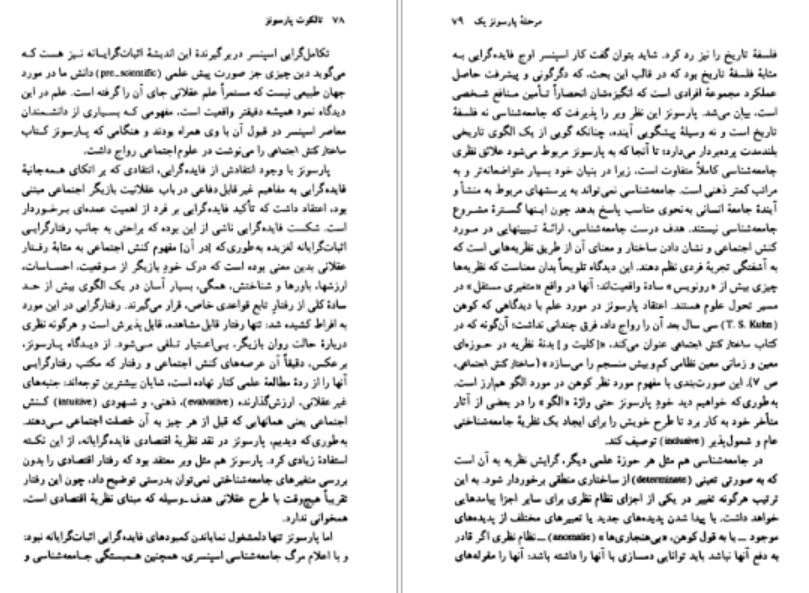 ۷۸ تالکوت پارسونز
تکامل‌گرایی اسپنسر دربرگیرندهٔ این اندیشهٔ اثبات‌گرایانه نیز هست که
می‌گوید دین چیزی جز صورت پیش علمی (pre_scientific) دانش ما در مورد
جهان طبیعی نیست که مستمراً علم عقلانی جای آن را گرفته است. علم در این
دیدگاه نمود همیشه دقیقتر واقعیت است، مفهومی که بسیاری از دانشمندان
معاصر اسپنسر در قبول آن با وی همراه بودند و هنگامی که پارسونز کتاب
ساختار کنش اجتماعی را می‌نوشت در علوم‌اجتماعی رواج داشت.
پارسونز با وجود انتقادش از فایده‌گرایی، انتقادی که بر اتکای همه‌جانبهٔ
فایده‌گرایی به مفاهیم غیر قابل دفاعی در باب عقلانیت بازیگر اجتماعی مبتنی
بود، اعتقاد داشت که تأکید فایده‌گرایی بر فرد از اهمیت عمده‌ای برخوردار
است. شکست فایده‌گرایی ناشی از این بوده که براحتی به جانب رفتارگرایی
اثبات‌گرایانه لغزیده به‌طوری‌که [در آن] مفهوم کنش اجتماعی به مثابهٔ رفتار
عقلانی بدین معنی بوده است که درک خود بازیگر از موقعیت، احساسات،
ارزشها، باورها و شناختش، همگی، بسیار آسان در یک الگوی بیش از حد
سادهٔ کلی از رفتارِ تابع قواعدی خاص، قرار می‌گیرند. رفتارگرایی در این مورد
به افراط کشیده شد: تنها رفتار قابل مشاهده، قابل پذیرش است و هرگونه نظری
دربارهٔ حالت روان بازیگر، بی‌اعتبار تلقی می‌شود. از دیدگاه پارسونز،
برعکس، دقیقاً آن عرصه‌های کنش اجتماعی و رفتار که مکتب رفتارگرایی
آنها را از ردهٔ مطالعهٔ علمی کنار نهاده است، شایان بیشترین توجه‌اند: جنبه‌های
غیرعقلانی، ارزش‌گذارنده (evalvative)، ذهنی، و شهودی (intuitive) کنش
اجتماعی یعنی همانهایی که قبل از هر چیز به آن خصلت اجتماعی می‌دهند.
به‌طوری‌که دیدیم، پارسونز در نقد نظریهٔ اقتصادی فایده‌گرایانه، از این نکته
استفادهٔ زیادی کرد. پارسونز هم مثل وبر معتقد بود که رفتار اقتصادی را بدون
بررسی متغیرهای جامعه‌شناختی نمی‌توان بدرستی توضیح داد، چون این رفتار
تقریباً هیچ‌وقت با طرح عقلانی هدف_وسیله که مبنای نظریهٔ اقتصادی است،
همخوانی ندارد.
اما پارسونز تنها دلمشغول نمایاندن کمبودهای فایده‌گرایی اثبات‌گرایانه نبود:
و با اعلام مرگ جامعه‌شناسی اسپنسری، همچنین همبستگی جامعه‌شناسی و
مرحلهٔ پارسونز یک ۷۹
فلسفهٔ تاریخ را نیز رد کرد. شاید بتوان گفت کار اسپنسر اوج فایده‌گرایی به
مثابهٔ فلسفهٔ تاریخ بود که در قالب این بحث، که دگرگونی و پیشرفت حاصل
عملکرد مجموعهٔ افرادی است که انگیزه‌شان انحصاراً تأمین منافع شخصی
است، بیان می‌شد. پارسونز این نظر وبر را پذیرفت که جامعه‌شناسی نه فلسفهٔ
تاریخ است و نه وسیلهٔ پیشگویی آینده، چنانکه گویی از یک الگوی تاریخی
بلندمدت پرده‌بردار می‌دارد؛ تا آنجا که به پارسونز مربوط می‌شود علائق نظری
جامعه‌شناسی کاملاً متفاوت است، زیرا در بنیان خود بسیار متواضعانه‌تر و به
مراتب کمتر ذهنی است. جامعه‌شناسی نمی‌تواند به پرسشهای مربوط به منشأ و
آیندهٔ جامعهٔ انسانی به‌نحوی مناسب پاسخ بدهد چون اینها گسترهٔ مشروع
جامعه‌شناسی نیستند. هدف درست جامعه‌شناسی، ارائهٔ تبیینهایی در مورد
کنش اجتماعی و نشان دادن ساختار و معنای آن از طریق نظریه‌هایی است که
به آشفتگی تجربهٔ فردی نظم دهند. این دیدگاه تلویحاً بدان معناست که نظریه‌ها
چیزی بیش از «رونویس» سادهٔ واقعیت‌اند: آنها در واقع «متغیری مستقل» در
مسیر تحول علوم هستند. اعتقاد پارسونز در مورد علم با دیدگاهی که کوهن
(T. S. Kuhn) سی سال بعد آن را رواج داد، فرق چندانی نداشت؛ آن‌گونه که در
کتاب ساختار کنش اجتماعی عنوان می‌کند، «[کلیت و] بدنهٔ نظریه در حوزه‌ای
معین و زمانی معین نظامی کم‌وبیش منسجم را می‌سازد» (ساختار کنش اجتماعی،
ص ۷). این صورت‌بندی با مفهوم مورد نظر کوهن در مورد الگو هم‌ارز است.
به‌طوری‌که خواهیم دید خود پارسونز حتی واژهٔ «الگو» را در بعضی از آثار
متأخر خود به کار برد تا طرح خویش را برای ایجاد یک نظریهٔ جامعه‌شناختی
عام و شمول‌پذیر (inclusive) توصیف کند.
در جامعه‌شناسی هم مثل هر حوزهٔ علمی دیگر، گرایش نظریه به آن است
که به صورتی تعینی (determinate) از ساختاری منطقی برخوردار شود. به این
ترتیب هرگونه تغییر در یکی از اجزای نظام نظری برای سایر اجزا پیامدهایی
خواهد داشت. با پیدا شدن پدیده‌های جدید یا تعبیرهای مختلف از پدیده‌های
موجود _ یا به قول کوهن، «بی‌هنجاری‌ها» (anomalie) _ نظام نظری اگر قادر
به دفع آنها نباشد باید توانایی دمسازی با آنها را داشته باشد: آنها را مقوله‌های